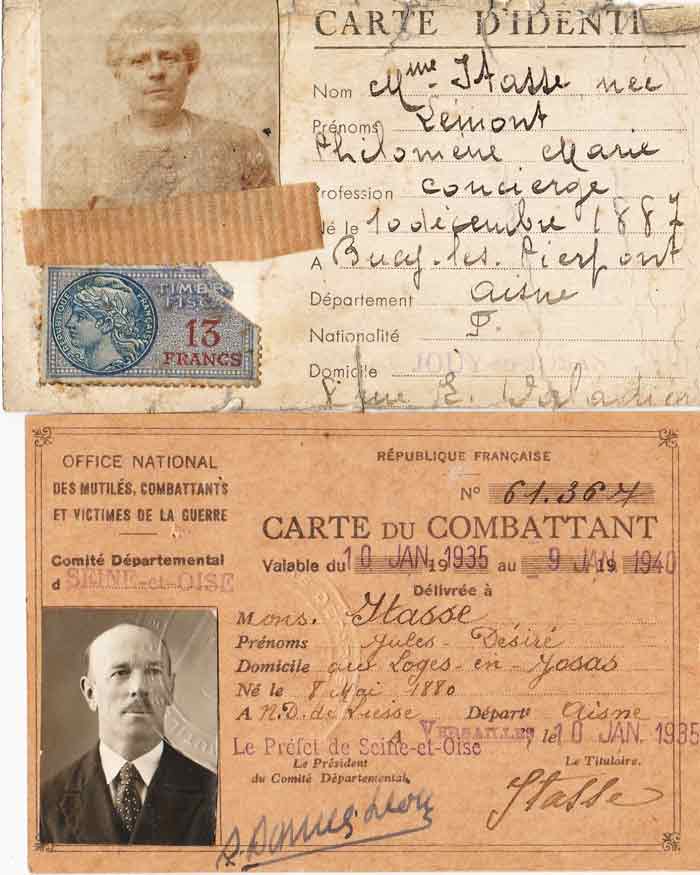 CARTE D'IDENTI
Nom Mme Itasse née
Prénoms Lemont
Philomène Marie
Profession concierge
Né le 10 décembre 1887
A Bucy-les-Pierpont
Département Aisne
Nationalité F.
Domicile
8 rue E.
RÉPUBLIQUE FRANÇAISE
TIMBR
FISC
13
FRANCS
OFFICE NATIONAL
DES MUTILÉS, COMBATTANTS
ET VICTIMES DE LA GUERRE
Comité Départemental
d SEINE-et-OISE
RÉPUBLIQUE FRANÇAISE
N° 61.364
CARTE DU COMBATTANT
Valable du 10 JAN. 1935 au 9 JAN 1940
Délivrée à
Mons. Itasse
Prénoms Jules-Désiré
Domicile aux Loges-en-Josas
Né le 8 Mai 1880
A N.D. de Liesse Départt Aisne
A VERSAILLES, le 10 JAN. 1935
Le Préfet de Seine-et-Oise
Le Président
du Comité Départemental,
Le Titulaire.
Itasse